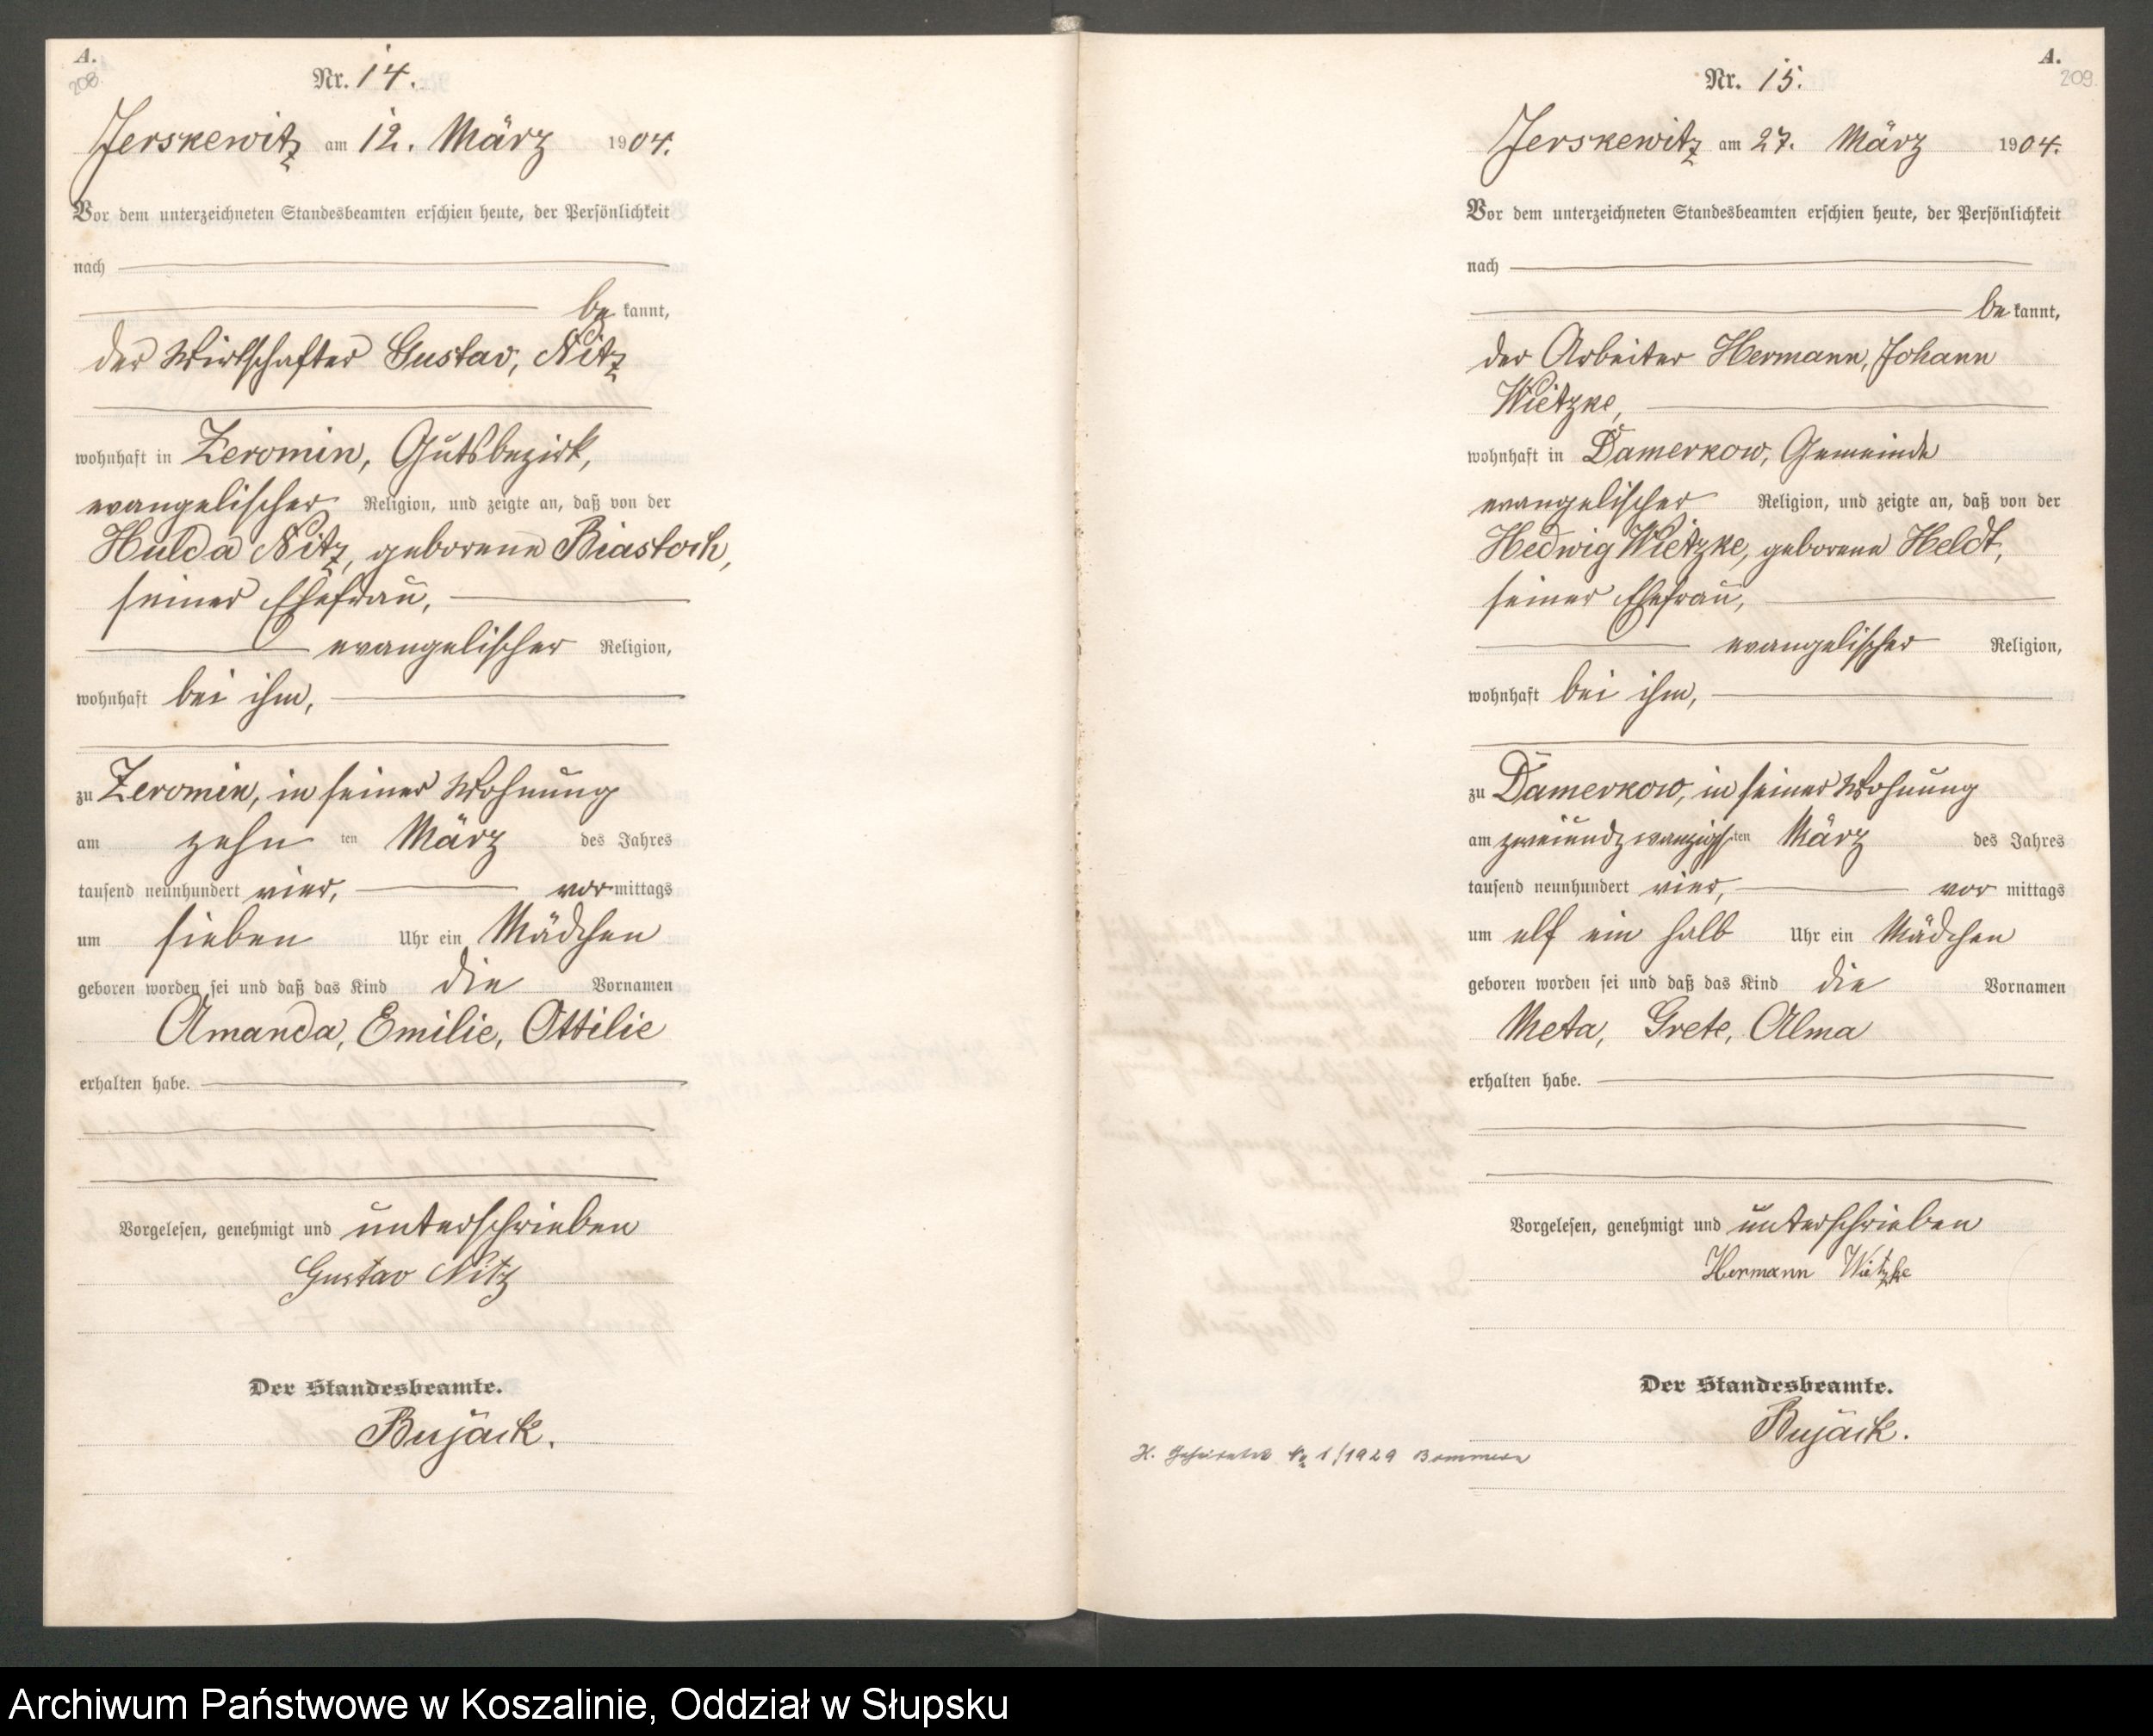 A.
208.
Nr. 14.
Jerskewitz am 12. März 1904.
Vor dem unterzeichneten Standesbeamten erschien heute, der Persönlichkeit
nach
be kannt,
der Wirtschafter Gustav, Nitz
wohnhaft in Zeromin, Gutsbezirk,
evangelischer Religion, und zeigte an, daß von der
Hulda Nitz, geborene Biastoch,
seiner Ehefrau,
evangelischer Religion,
wohnhaft bei ihm,
zu Zeromin, in seiner Wohnung
am zehn ten März des Jahres
tausend neunhundert vier, vor mittags
um sieben Uhr ein Mädchen
geboren worden sei und daß das Kind die Vornamen
Amanda, Emilie, Ottilie
erhalten habe.
Vorgelesen, genehmigt und unterschrieben
Gustav Nitz
Der Standesbeamte.
Bujack.
A.
209.
Nr. 15.
Jerskewitz am 27. März 1904.
Vor dem unterzeichneten Standesbeamten erschien heute, der Persönlichkeit
nach
be kannt,
der Arbeiter Hermann, Johann
Wietzke,
wohnhaft in Damerkow, Gemeinde
evangelischer Religion, und zeigte an, daß von der
Hedwig Wietzke, geborene Heldt,
seiner Ehefrau,
evangelischer Religion,
wohnhaft bei ihm,
zu Damerkow, in seiner Wohnung
am zweiundzwanzigsten März des Jahres
tausend neunhundert vier, vor mittags
um elf ein halb Uhr ein Mädchen
geboren worden sei und daß das Kind die Vornamen
Meta, Grete, Alma
erhalten habe.
Vorgelesen, genehmigt und unterschrieben
Hermann Wietzke
Der Standesbeamte.
Bujack.
1/1929
Archiwum Państwowe w Koszalinie, Oddział w Słupsku